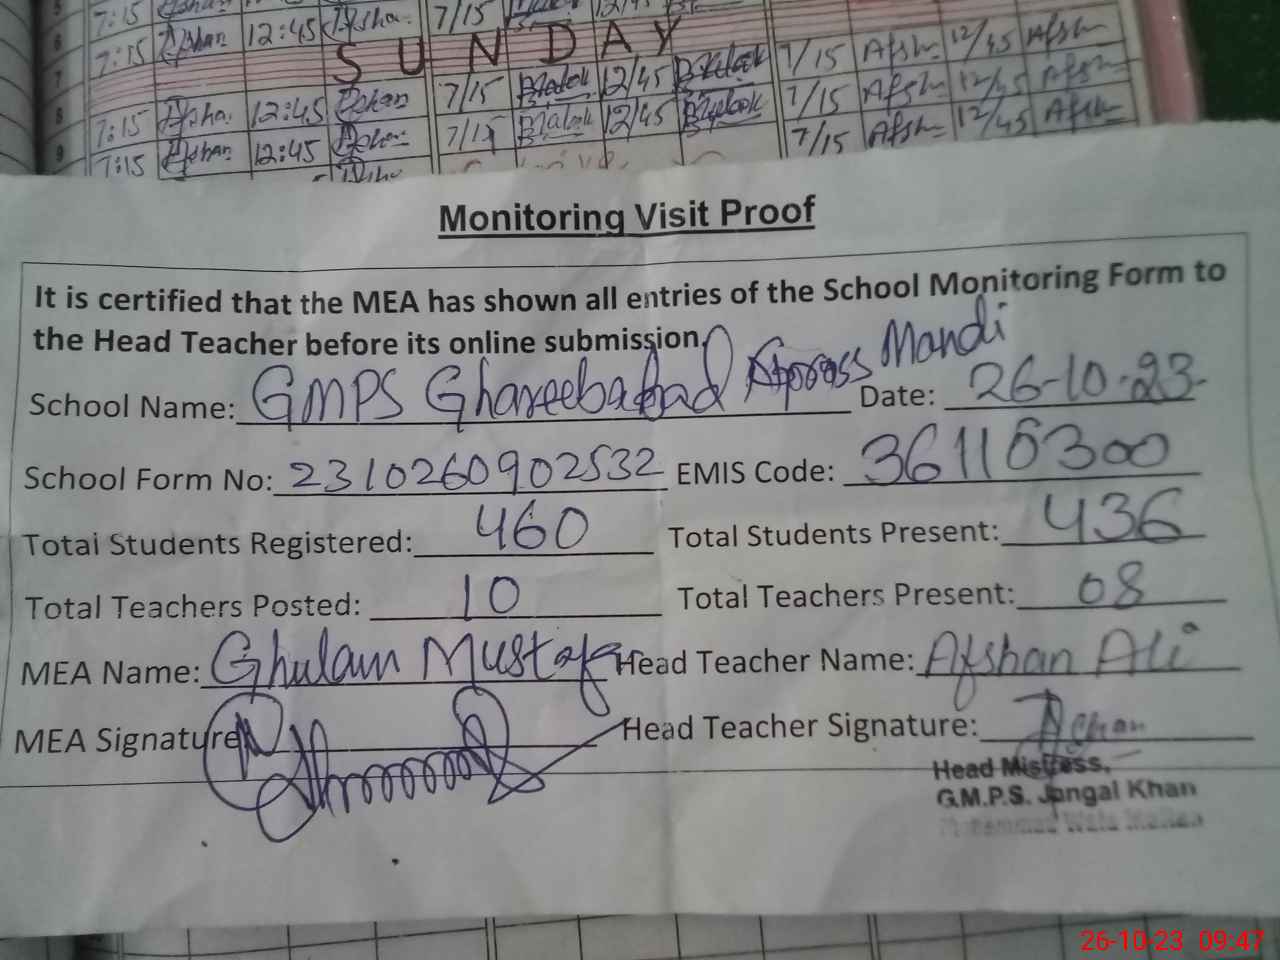 7:15 Afshan 12:45 Afsha. 7/15 12/45
6 7:15 Afshan 12:45 7/15 Afsh 12/45 Afsh
7 SUNDAY
8 7:15 Afsha. 12:45 Afshan 7/15 12/45 7/15 Afsh 12/45 Afsh
9 7:15 Afshan 12:45 Afshan 7/15 12/45 7/15 Afsh 12/45 Afsh
Monitoring Visit Proof
It is certified that the MEA has shown all entries of the School Monitoring Form to
the Head Teacher before its online submission.
School Name: GMPS Ghareebabad Mandi Date: 26-10-23
School Form No: 2310260902532 EMIS Code: 36110300
Total Students Registered: 460 Total Students Present: 436
Total Teachers Posted: 10 Total Teachers Present: 08
MEA Name: Ghulam Mustafa Head Teacher Name: Afshan Ali
MEA Signature Head Teacher Signature: Afshan
Head Mistress,
G.M.P.S. Jangal Khan
26-10-23 09:47